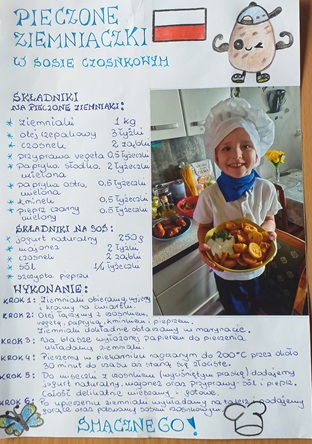 PIECZONE
ZIEMNIACZKI
W SOSIE CZOSNKOWYM
SKŁADNIKI
NA PIECZONE ZIEMNIAKI:
* ziemniaki 1 kg
* olej rzepakowy 3 łyżki
* czosnek 2 ząbki
* przyprawa vegeta 0.5 łyżeczki
* papryka słodka 2 łyżeczki
mielona
* papryka ostra 0.5 łyżeczki
mielona
* kminek 0.5 łyżeczki
* pieprz czarny 0.5 łyżeczki
mielony
SKŁADNIKI NA SOS:
* jogurt naturalny 250g
* majonez 2 łyżki
* czosnek 2 ząbki
* sól 1/4 łyżeczki
* szczypta pieprzu
WYKONANIE:
KROK 1: Ziemniaki obieramy, myjemy
i kroimy na ćwiartki.
KROK 2: Olej łączymy z czosnkiem,
vegetą, papryką, kminkiem i pieprzem.
Ziemniaki dokładnie obtaczamy w marynacie.
KROK 3: Na blasze wyłożonej papierem do pieczenia
układamy ziemniaki.
KROK 4: Pieczemy w piekarniku nagrzanym do 200°C przez około
30 minut do czasu aż staną się złociste.
KROK 5: Do miseczki z czosnkiem (wyciśniętym praską) dodajemy
jogurt naturalny, majonez oraz przyprawy: sól i pieprz.
Całość delikatnie mieszamy i gotowe.
KROK 6: Po upieczeniu ziemniaki wykładamy na talerz i podajemy
gorące oraz polewamy sosem czosnkowym.
SMACZNEGO!